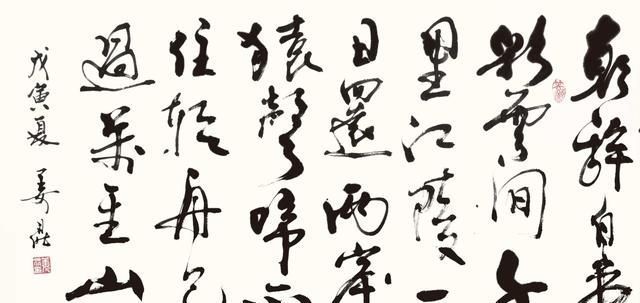 朝辭白帝
彩雲間千
里江陵一
日還兩岸
猿聲啼不
住輕舟已
過萬重山
戊寅夏 姜